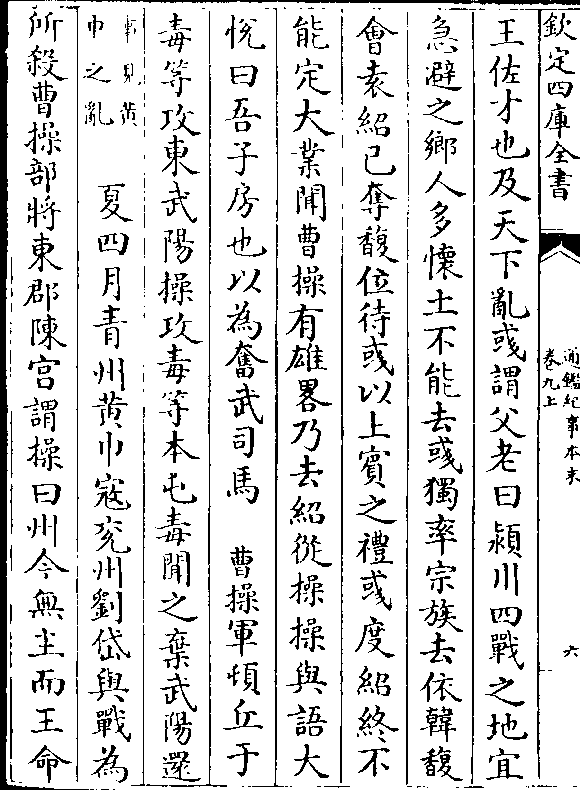 欽定四庫全書
通鑑紀事本末
卷九上
六
王佐才也及天下亂彧謂父老曰潁川四戰之地宜
急避之鄉人多懷土不能去彧獨率宗族去依韓馥
會袁紹已奪馥位待彧以上賓之禮彧度紹終不
能定大業聞曹操有雄畧乃去紹從操操與語大
悅曰吾子房也以為奮武司馬 曹操軍頓丘于
毒等攻東武陽操攻毒等本屯毒聞之棄武陽還
事見黃
巾之亂
夏四月青州黃巾寇兗州劉岱與戰為
所殺曹操部將東郡陳宮謂操曰州今無主而王命